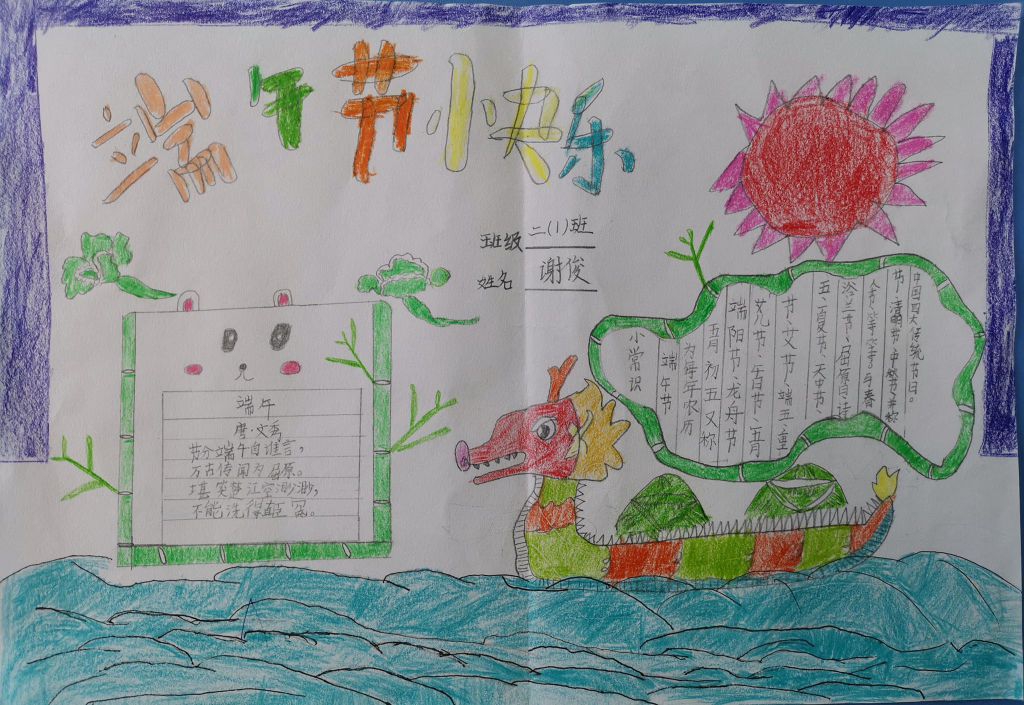 端午节快乐
班级 二(1)班
姓名 谢俊
端午
唐·文秀
节分端午自谁言,
万古传闻为屈原。
堪笑楚江空渺渺,
不能洗得直臣冤。
小常识
端午节
为每年农历
五月初五又称
端阳节、龙舟节
艾节、五月
节、文节、端五、重
五、夏节、天中节、
浴兰节、屈原日、诗
人节等等与春
节、清明节、中秋节并称
中国四大传统节日。